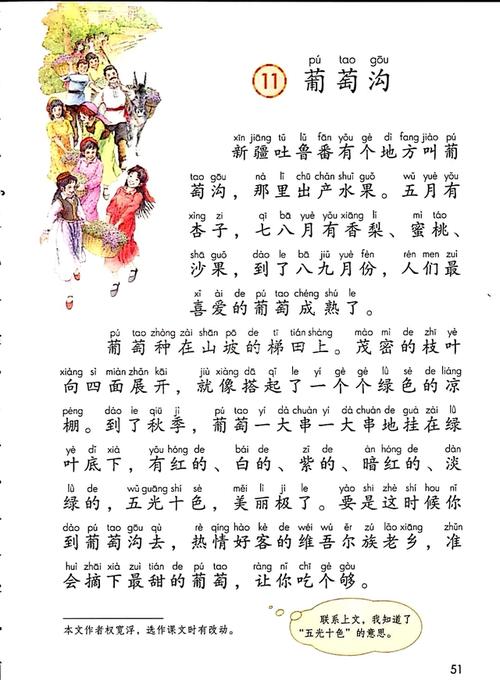 pú tao gōu
11 葡萄沟
xīn jiāng tǔ lǔ fān yǒu gè dì fang jiào pú
新疆吐鲁番有个地方叫葡
tao gōu nà lǐ chū chǎn shuǐ guǒ wǔ yuè yǒu
萄沟，那里出产水果。五月有
xìng zi qī bā yuè yǒu xiāng lí mì táo
杏子，七八月有香梨、蜜桃、
shā guǒ dào le bā jiǔ yuè fèn rén men zuì
沙果，到了八九月份，人们最
xǐ ài de pú tao chéng shú le
喜爱的葡萄成熟了。
pú tao zhòng zài shān pō de tī tián shàng mào mì de zhī yè
葡萄种在山坡的梯田上。茂密的枝叶
xiàng sì miàn zhǎn kāi jiù xiàng dā qǐ le yí gè gè lǜ sè de liáng
向四面展开，就像搭起了一个个绿色的凉
péng dào le qiū jì pú tao yí dà chuàn yí dà chuàn de guà zài lǜ
棚。到了秋季，葡萄一大串一大串地挂在绿
yè dǐ xià yǒu hóng de bái de zǐ de àn hóng de dàn
叶底下，有红的、白的、紫的、暗红的、淡
lǜ de wǔ guāng shí sè měi lì jí le yào shì zhè shí hou nǐ
绿的，五光十色，美丽极了。要是这时候你
dào pú tao gōu qù rè qíng hào kè de wéi wú ěr zú lǎo xiāng zhǔn
到葡萄沟去，热情好客的维吾尔族老乡，准
huì zhāi xià zuì tián de pú tao ràng nǐ chī gè gòu
会摘下最甜的葡萄，让你吃个够。
本文作者权宽浮，选作课文时有改动。
联系上文，我知道了
“五光十色”的意思。
51